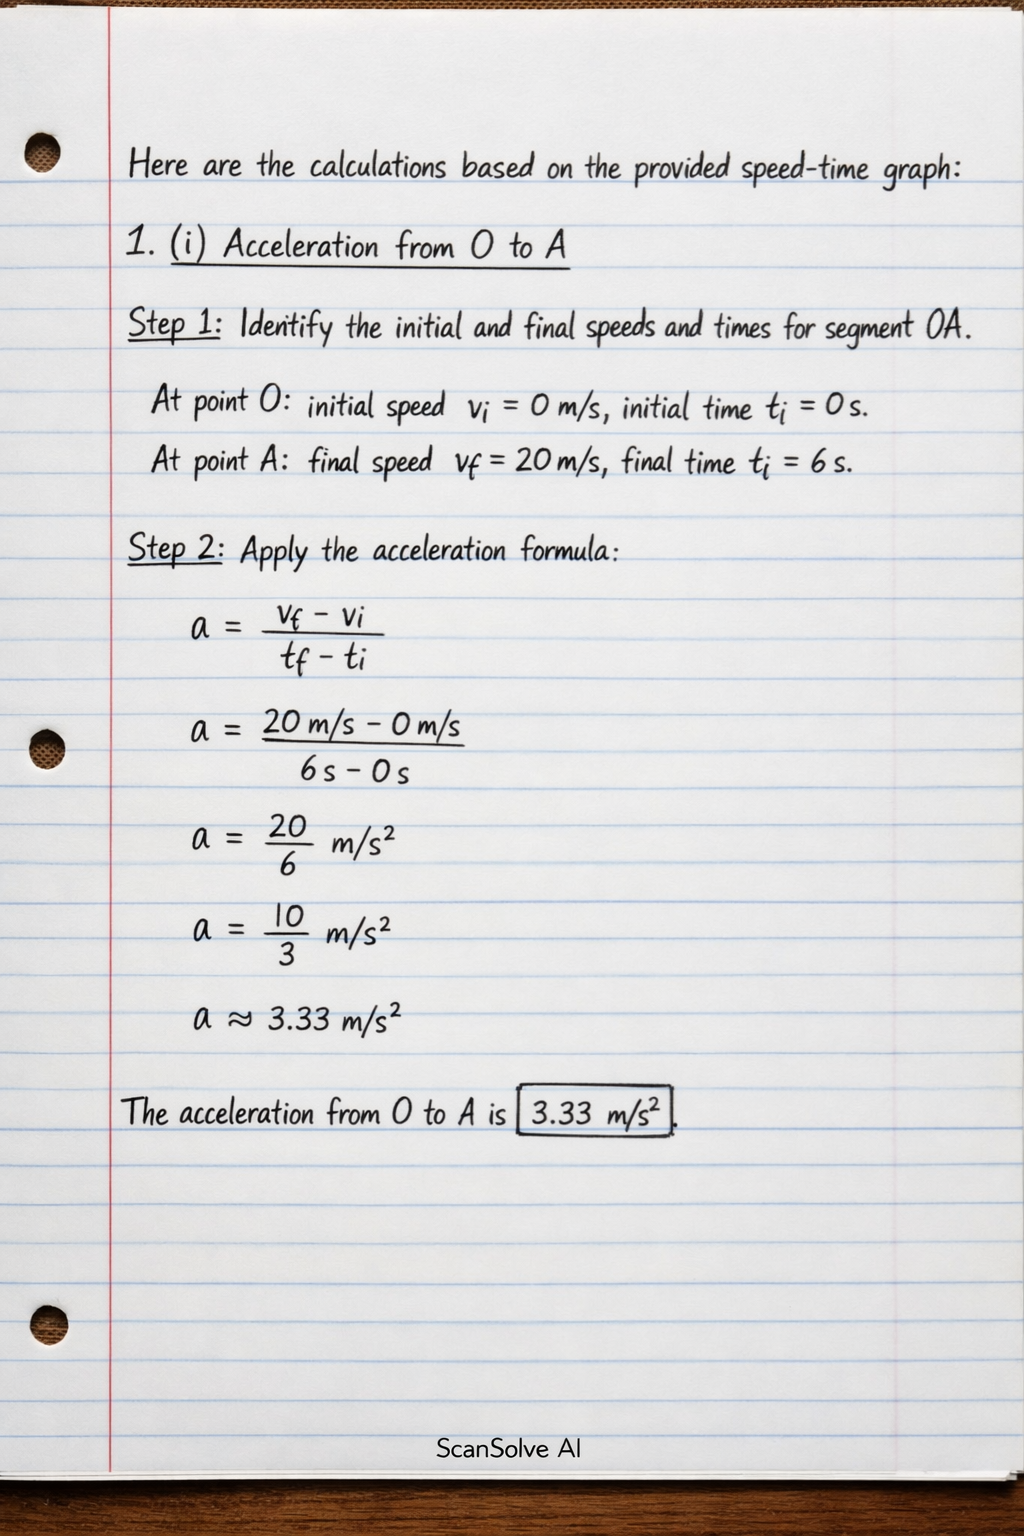 Here are the calculations based on the provided speed-time graph:
1. (i) Acceleration from O to A
Step 1: Identify the initial and final speeds and times for segment OA.
At point O: initial speed vi = 0 m/s, initial time ti = 0 s.
At point A: final speed vf = 20 m/s, final time ti = 6 s.
Step 2: Apply the acceleration formula:
a = vf - vi
tf - ti
a = 20 m/s - 0 m/s
6 s - 0 s
a = 20/6 m/s²
a = 10/3 m/s²
a ≈ 3.33 m/s²
The acceleration from O to A is 3.33 m/s².
ScanSolve AI